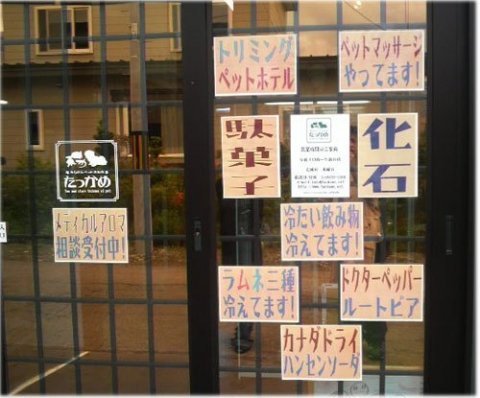 トリミング
ペットホテル
ペットマッサージ
やってます!
駄菓子
たっかめ
化石
たっかめ
メディカルアロマ
相談受付中!
冷たい飲み物
冷えてます!
ラムネ三種
冷えてます!
ドクターペッパー
ルートビア
カナダドライ
ハンセンソーダ